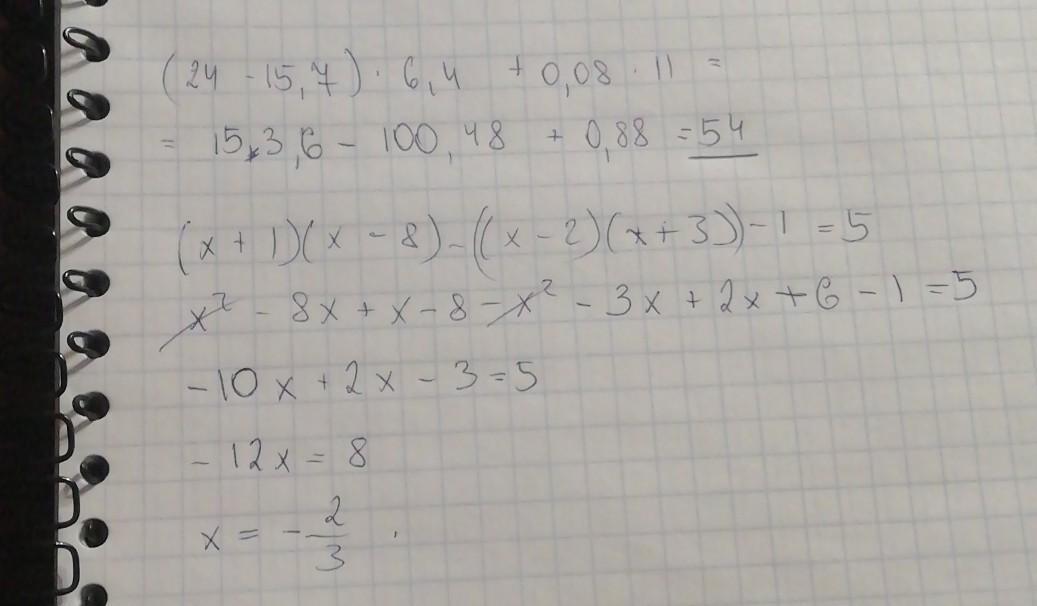 (24 - 15,7) · 6,4 + 0,08 · 11 =
= 153,6 - 100,48 + 0,88 = 54
(x + 1)(x - 8) - ((x - 2)(x + 3)) - 1 = 5
x² - 8x + x - 8 - x² - 3x + 2x + 6 - 1 = 5
-10x + 2x - 3 = 5
- 12x = 8
x = - 2/3 .